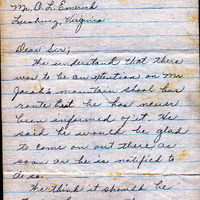 Mr. O. L. Emerick
Leesburg, Virginia
Dear Sir;
We understand that there
was to be an extention on Mr
Jacob's mountain shool bus
route but he has never
been informed of it. He
said he would be glad
to come on out there as
soon as he is notified to
do so.
We think it should be